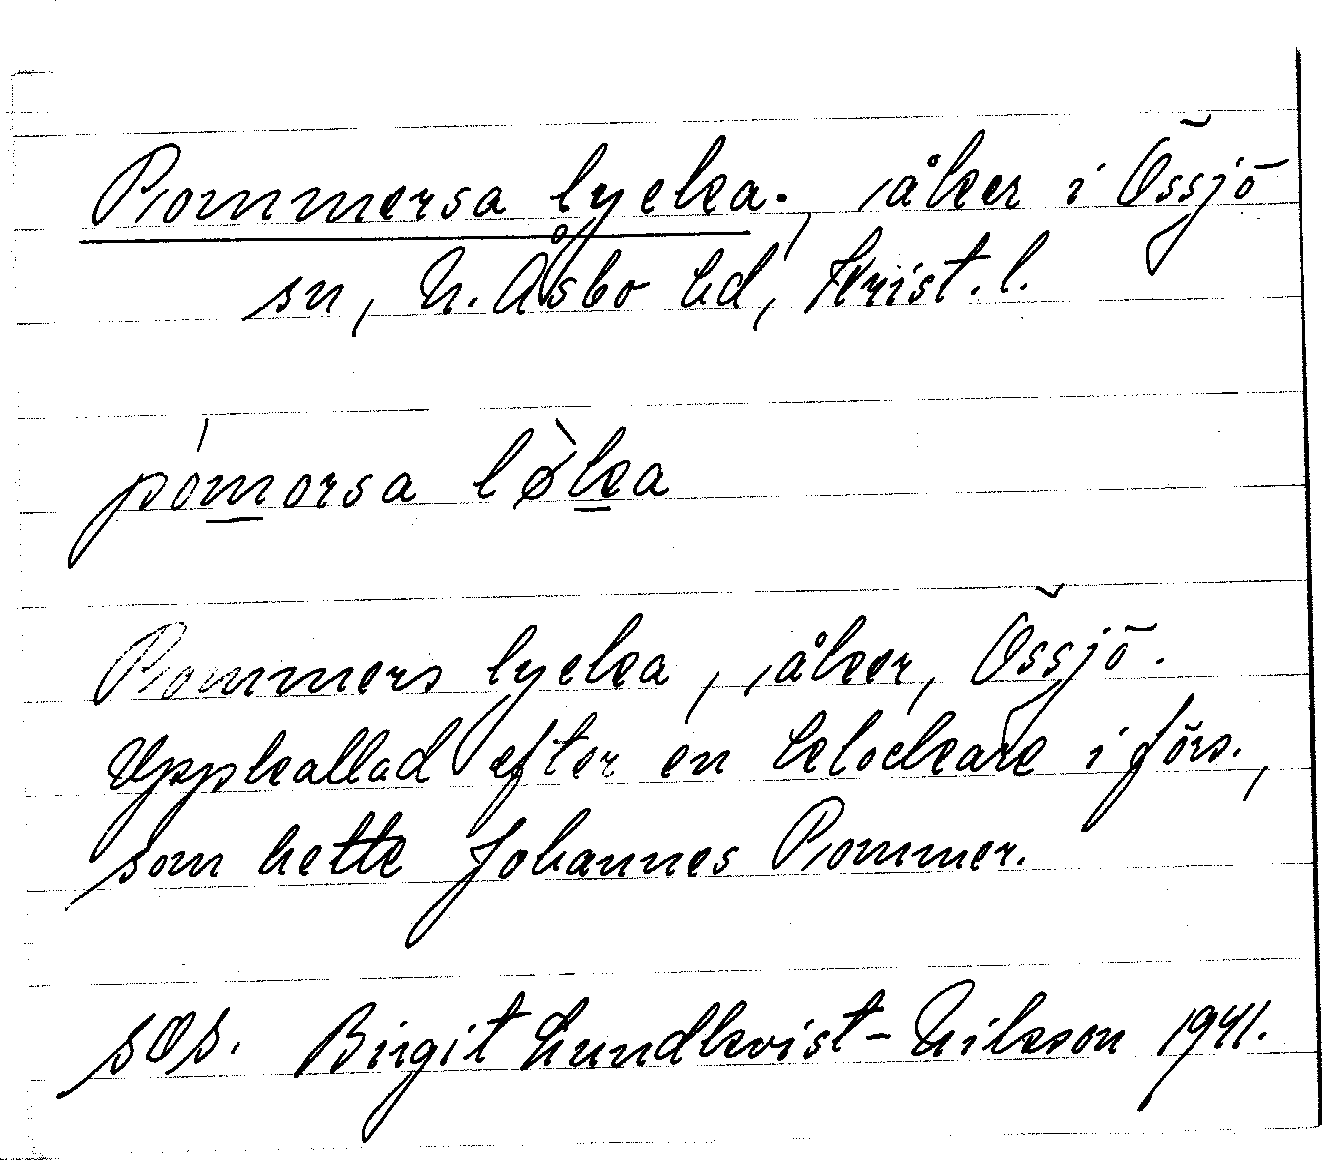 Pommersa lycka., åker i Össjö
sn, N. Åsbo hd, Krist. l.
pómorsa lø̀ka
Pommers lycka, åker, Össjö.
Uppkallad efter en klockare i förs.,
som hette Johannes Pommer.
sos. Birgit Lundkvist-Nilsson 1941.